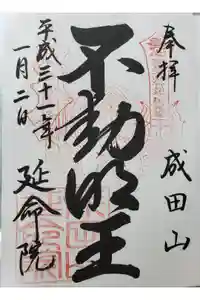 奉拝
成田山
不動明王
平成三十一年
一月二日
延命院